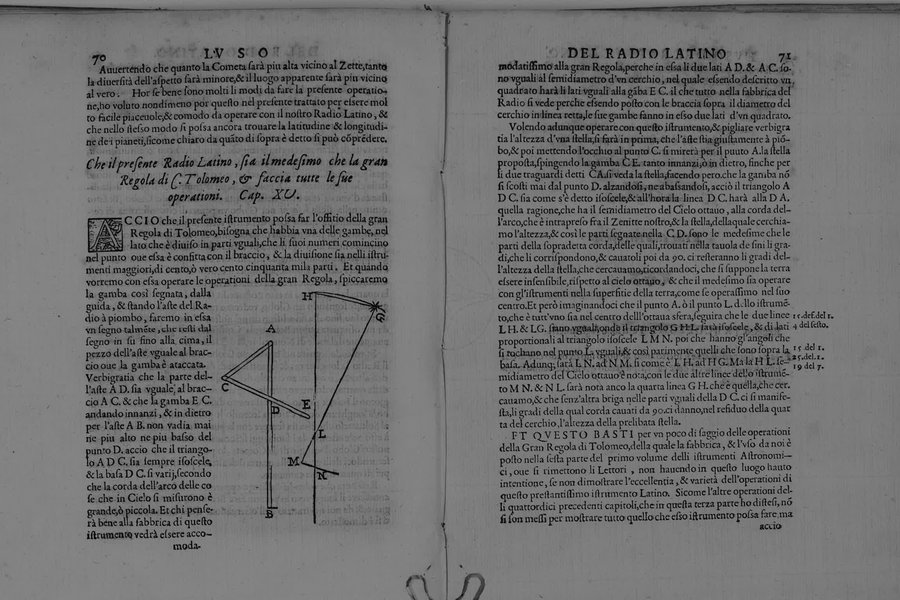 70 LV SO
Auuertendo che quanto la Cometa sarà piu alta vicino al Zette, tanto
la diuersità dell'aspetto sarà minore, & il luogo apparente sarà piu vicino
al vero. Hor se bene sono molti li modi da fare la presente operatio-
ne, ho voluto nondimeno por questo nel presente trattato per essere mol
to facile piaceuole, & comodo da operare con il nostro Radio Latino, &
che nello stesso modo si possa ancora trouare la latitudine & longitudi-
ne de i pianeti, sicome chiaro da quãto di sopra è detto si può cõprẽdere.
Che il presente Radio Latino, sia il medesimo che la gran
Regola di C. Tolomeo, & faccia tutte le sue
operationi. Cap. XV.
ACCIO che il presente istrumento possa far l'offitio della gran
Regola di Tolomeo, bisogna che habbia vna delle gambe, nel
lato che è diuiso in parti vguali, che li suoi numeri comincino
nel punto oue essa è confitta con il braccio, & la diuisione sia nelli istru-
menti maggiori, di cento, ò vero cento cinquanta mila parti. Et quando
vorremo con essa operare le operationi della gran Regola, spiccaremo
la gamba così segnata, dalla
guida, & stando l'aste del Ra-
dio à piombo, faremo in essa
vn segno talmẽte, che resti dal
segno in su fino alla cima, il
pezzo dell'aste vguale al brac-
cio oue la gamba è attaccata.
Verbigratia che la parte del-
l'aste A D. sia vguale, al brac-
cio A C. & che la gamba E C.
andando innanzi, & in dietro
per l'aste A B. non vadia mai
ne piu alto ne piu basso del
punto D. accio che il triango-
lo A D C. sia sempre isoscele,
& la basa D C. si varij, secondo
che la corda dell'arco delle co
se che in Cielo si misurono è
grande, ò piccola. Et chi pense-
rà bene alla fabbrica di questo
istrumento vedrà essere acco-
moda-
A
C
D
E
B
H
G
L
M
N
DEL RADIO LATINO 71
modatissimo alla gran Regola, perche in essa li due lati A D. & A C. so-
no vguali al semidiametro d'vn cerchio, nel quale essendo descritto vn
quadrato harà li lati vguali alla gãba E C. il che tutto nella fabbrica del
Radio si vede perche essendo posto con le braccia sopra il diametro del
cerchio in linea retta, le sue gambe fanno in esso due lati d'vn quadrato.
Volendo adunque operare con questo istrumento, & pigliare verbigra
tia l'altezza d'vna stella, si farà in prima, che l'aste stia giustamente à piõ-
bo, & poi mettendo l'occhio al punto C. si mirerà per il punto A. la stella
proposta, spingendo la gamba C E. tanto innanzi, ò in dietro, finche per
li due traguardi detti C A. si veda la stella, facendo pero che la gamba nõ
si scosti mai dal punto D. alzandosi, ne abassandosi, acciò il triangolo A
D C. sia come s'è detto isoscele, & all'hora la linea D C. harà alla D A.
quella ragione, che ha il semidiametro del Cielo ottauo, alla corda del-
l'arco, che è intrapreso fra il Zenite nostro, & la stella, della quale cerchia-
mo l'altezza, & così le parti segnate nella C D. sono le medesime che le
parti della sopradetta corda, delle quali, trouati nella tauola de sini li gra-
di, che li corrispondono, & cauatoli poi da 90. ci resteranno li gradi del-
l'altezza della stella, che cercauamo, ricordandoci, che si suppone la terra
essere insensibile, rispetto al cielo ottauo, & che il medesimo sia operare
con gl'istrumenti nella superfitie della terra, come se operassimo nel suo
centro. Et però imaginandoci che il punto A. ò il punto L. dello istrumẽ-
to, che è tutt'vno sia nel centro dell'ottaua sfera, seguira che le due linee
L H. & L G. siano vguali, onde il triangolo G H L. sarà isoscele, & di lati
proportionali al triangolo isoscele L M N. poi che hanno gl'angoli che
si tochano nel punto L. vguali, & così parimente quelli che sono sopra la
basa. Adunq; sarà L N. ad N M. si come è L H. ad H G. Ma la H L. se-
midiametro del Cielo ottauo è nota, con le due altre linee dello istrumẽ-
to M N. & N L. sarà nota anco la quarta linea G H. che è quella, che cer-
cauamo, & che senz'altra briga nelle parti vguali della D C. ci si manife-
sta, li gradi della qual corda cauati da 90. ci danno, nel residuo della quar
ta del cerchio, l'altezza della prelibata stella.
ET QVESTO BASTI per vn poco di saggio delle operationi
della Gran Regola di Tolomeo, della quale la fabbrica, & l'vso da noi è
posto nella sesta parte del primo volume delli istrumenti Astronomi-
ci, oue si rimettono li Lettori, non hauendo in questo luogo hauto
intentione, se non dimostrare l'eccellentia, & varietà dell'operationi di
questo prestantissimo istrumento Latino. Sicome l'altre operationi del-
li quattordici precedenti capitoli, che in questa terza parte ho distesi, nõ
si son messi per mostrare tutto quello che esso istrumento possa fare, ma
accio
4 del sesto.
15 del 1.
19 del 7.